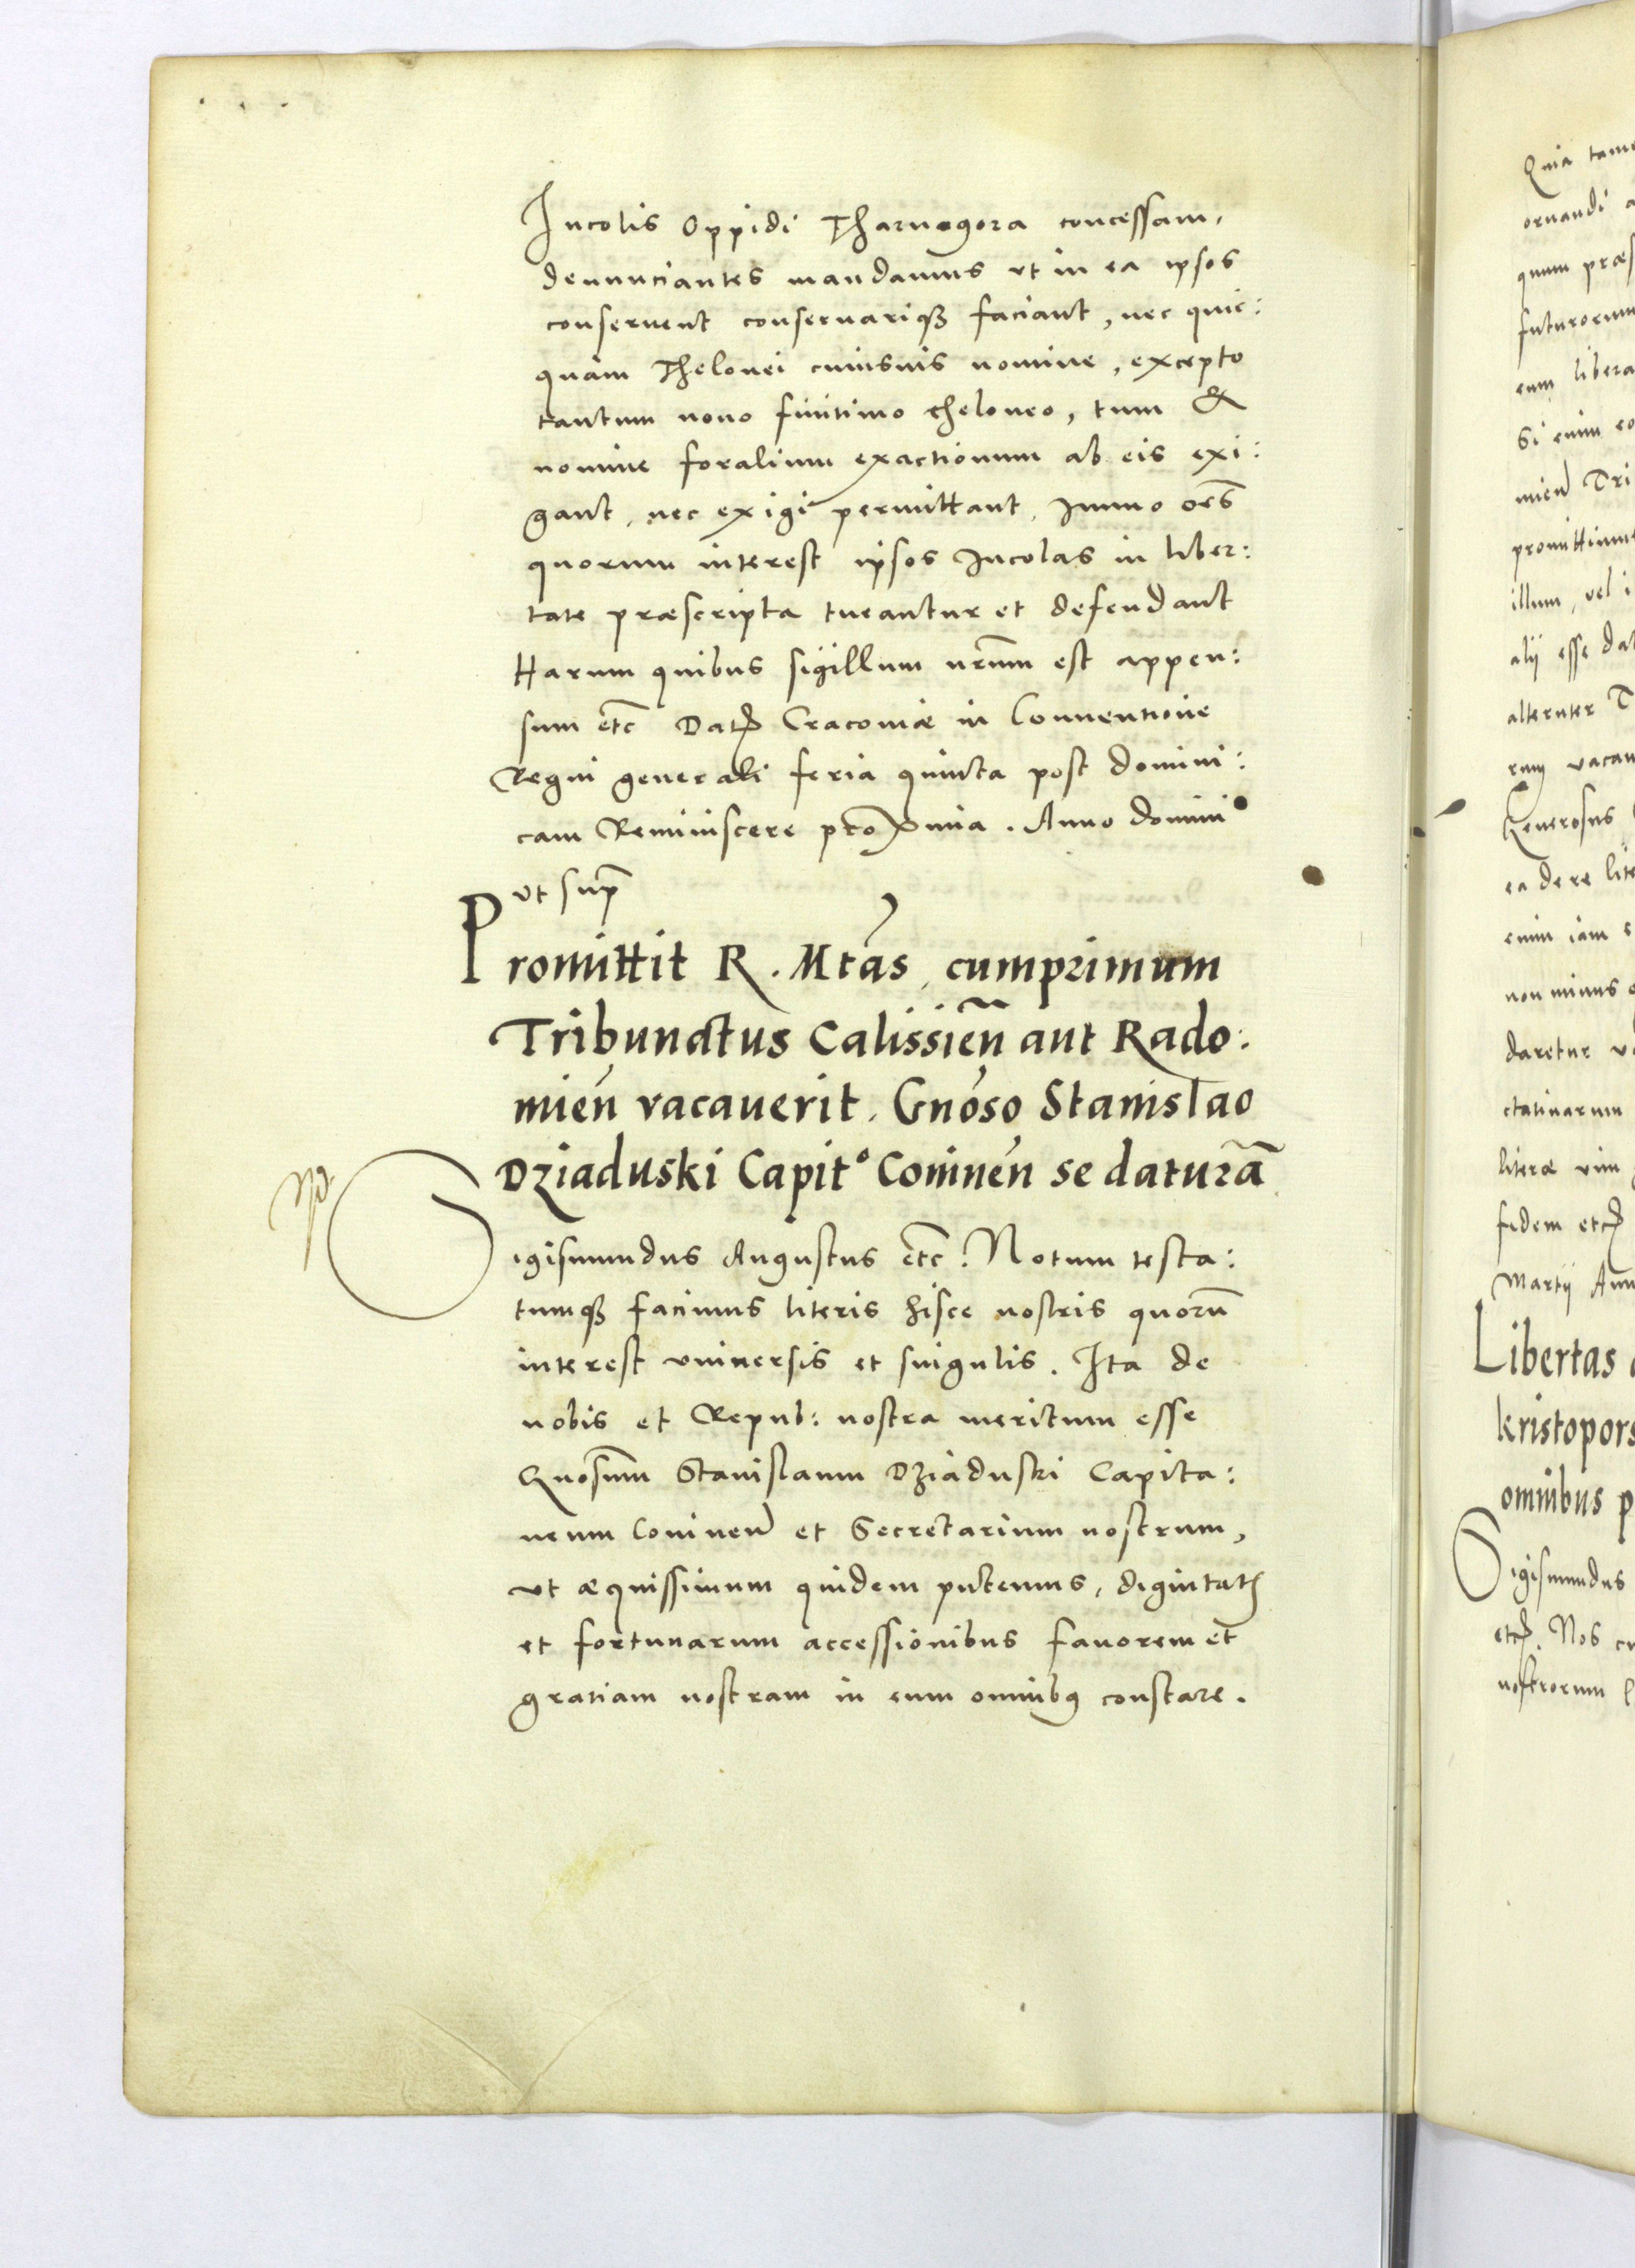 Incolis Oppidi Tharnogora concessam,
denunciantes mandamus vt in ea ipsos
conseruent conseruariqꝫ faciant, nec quic:
quàm Thelonei cuiusuis nomine, excepto
tantum nouo finitimo theloneo, tum &
nomine foralium exactionum ab eis exi:
gant, nec exigi permittant, Immo oēs
quorum interest ipsos Incolas in liber:
tate præscripta tueantur et defendant
Harum quibus sigillum nr̄um est appen:
sum etc̄ Datꝭ Cracouiæ in Conuentione
Regni generali feria quinta post domini:
cam Reminiscere proxima. Anno domini
vt sup̄
Promittit R. Mtās, cumprimum
Tribunatus Calissien̄ aut Rado:
mien̄ vacauerit. Gnōso Stanislao
Dziaduski Capit° Coninen̄ se daturā
Sigismundus Augustus etc̄. Notum testa:
tumqꝫ facimus literis hisce nostris quorū
interest vniuersis et singulis. Ita de
nobis et Repub: nostra meritum esse
Gnōsum Stanislaum Dziaduski Capita:
neum Coninen̄ et Secretarium nostrum,
vt æquissimum quidem putemus, dignitatꝭ
et fortunarum accessionibus fauorem et
gratiam nostram in eum omnibꝰ constare.
Quia
ornandi
quum
futurorum
eum libera
Si enim
mien̄ Tri
promittimus
illum, vel
alij esse
alteruter
vacau
Generosus
ea de re
enim iam
non minus
daretur
literæ vim
fidem etcꝭ
Martij
Libertas
kristopors
omnibus
Sigismundus
etcꝭ. Nos
nostrorum